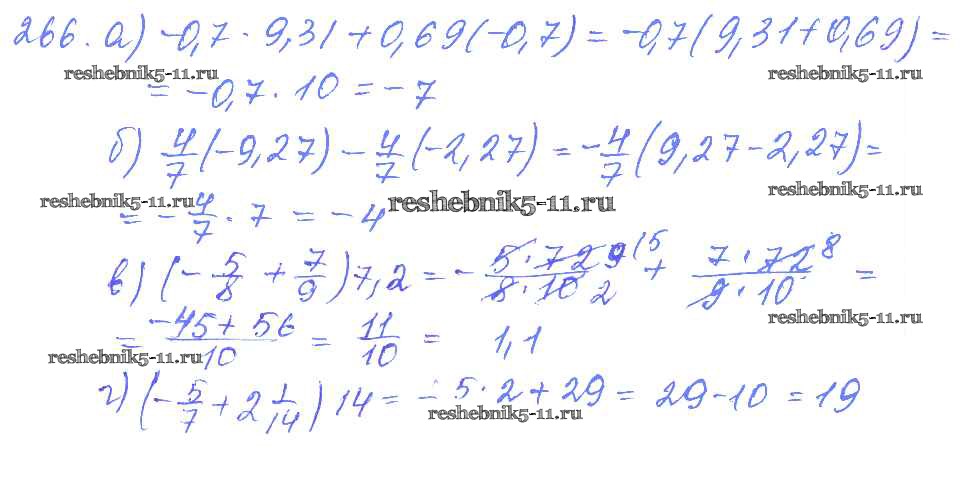 266. а) -0,7 · 9,31 + 0,69(-0,7) = -0,7(9,31 + 0,69) =
reshebnik5-11.ru reshebnik5-11.ru
= -0,7 · 10 = -7
б) 4/7(-9,27) - 4/7(-2,27) = -4/7(9,27 - 2,27) =
reshebnik5-11.ru reshebnik5-11.ru reshebnik5-11.ru
= -4/7 · 7 = -4
в) (-5/8 + 7/9)7,2 = - 5·72 9/8·10 2 + 7·72 8/9·10 =
reshebnik5-11.ru
= -45+56/10 = 11/10 = 1,1
reshebnik5-11.ru
г) (-5/7 + 2 1/14)14 = -5·2 + 29 = 29-10 = 19
reshebnik5-11.ru